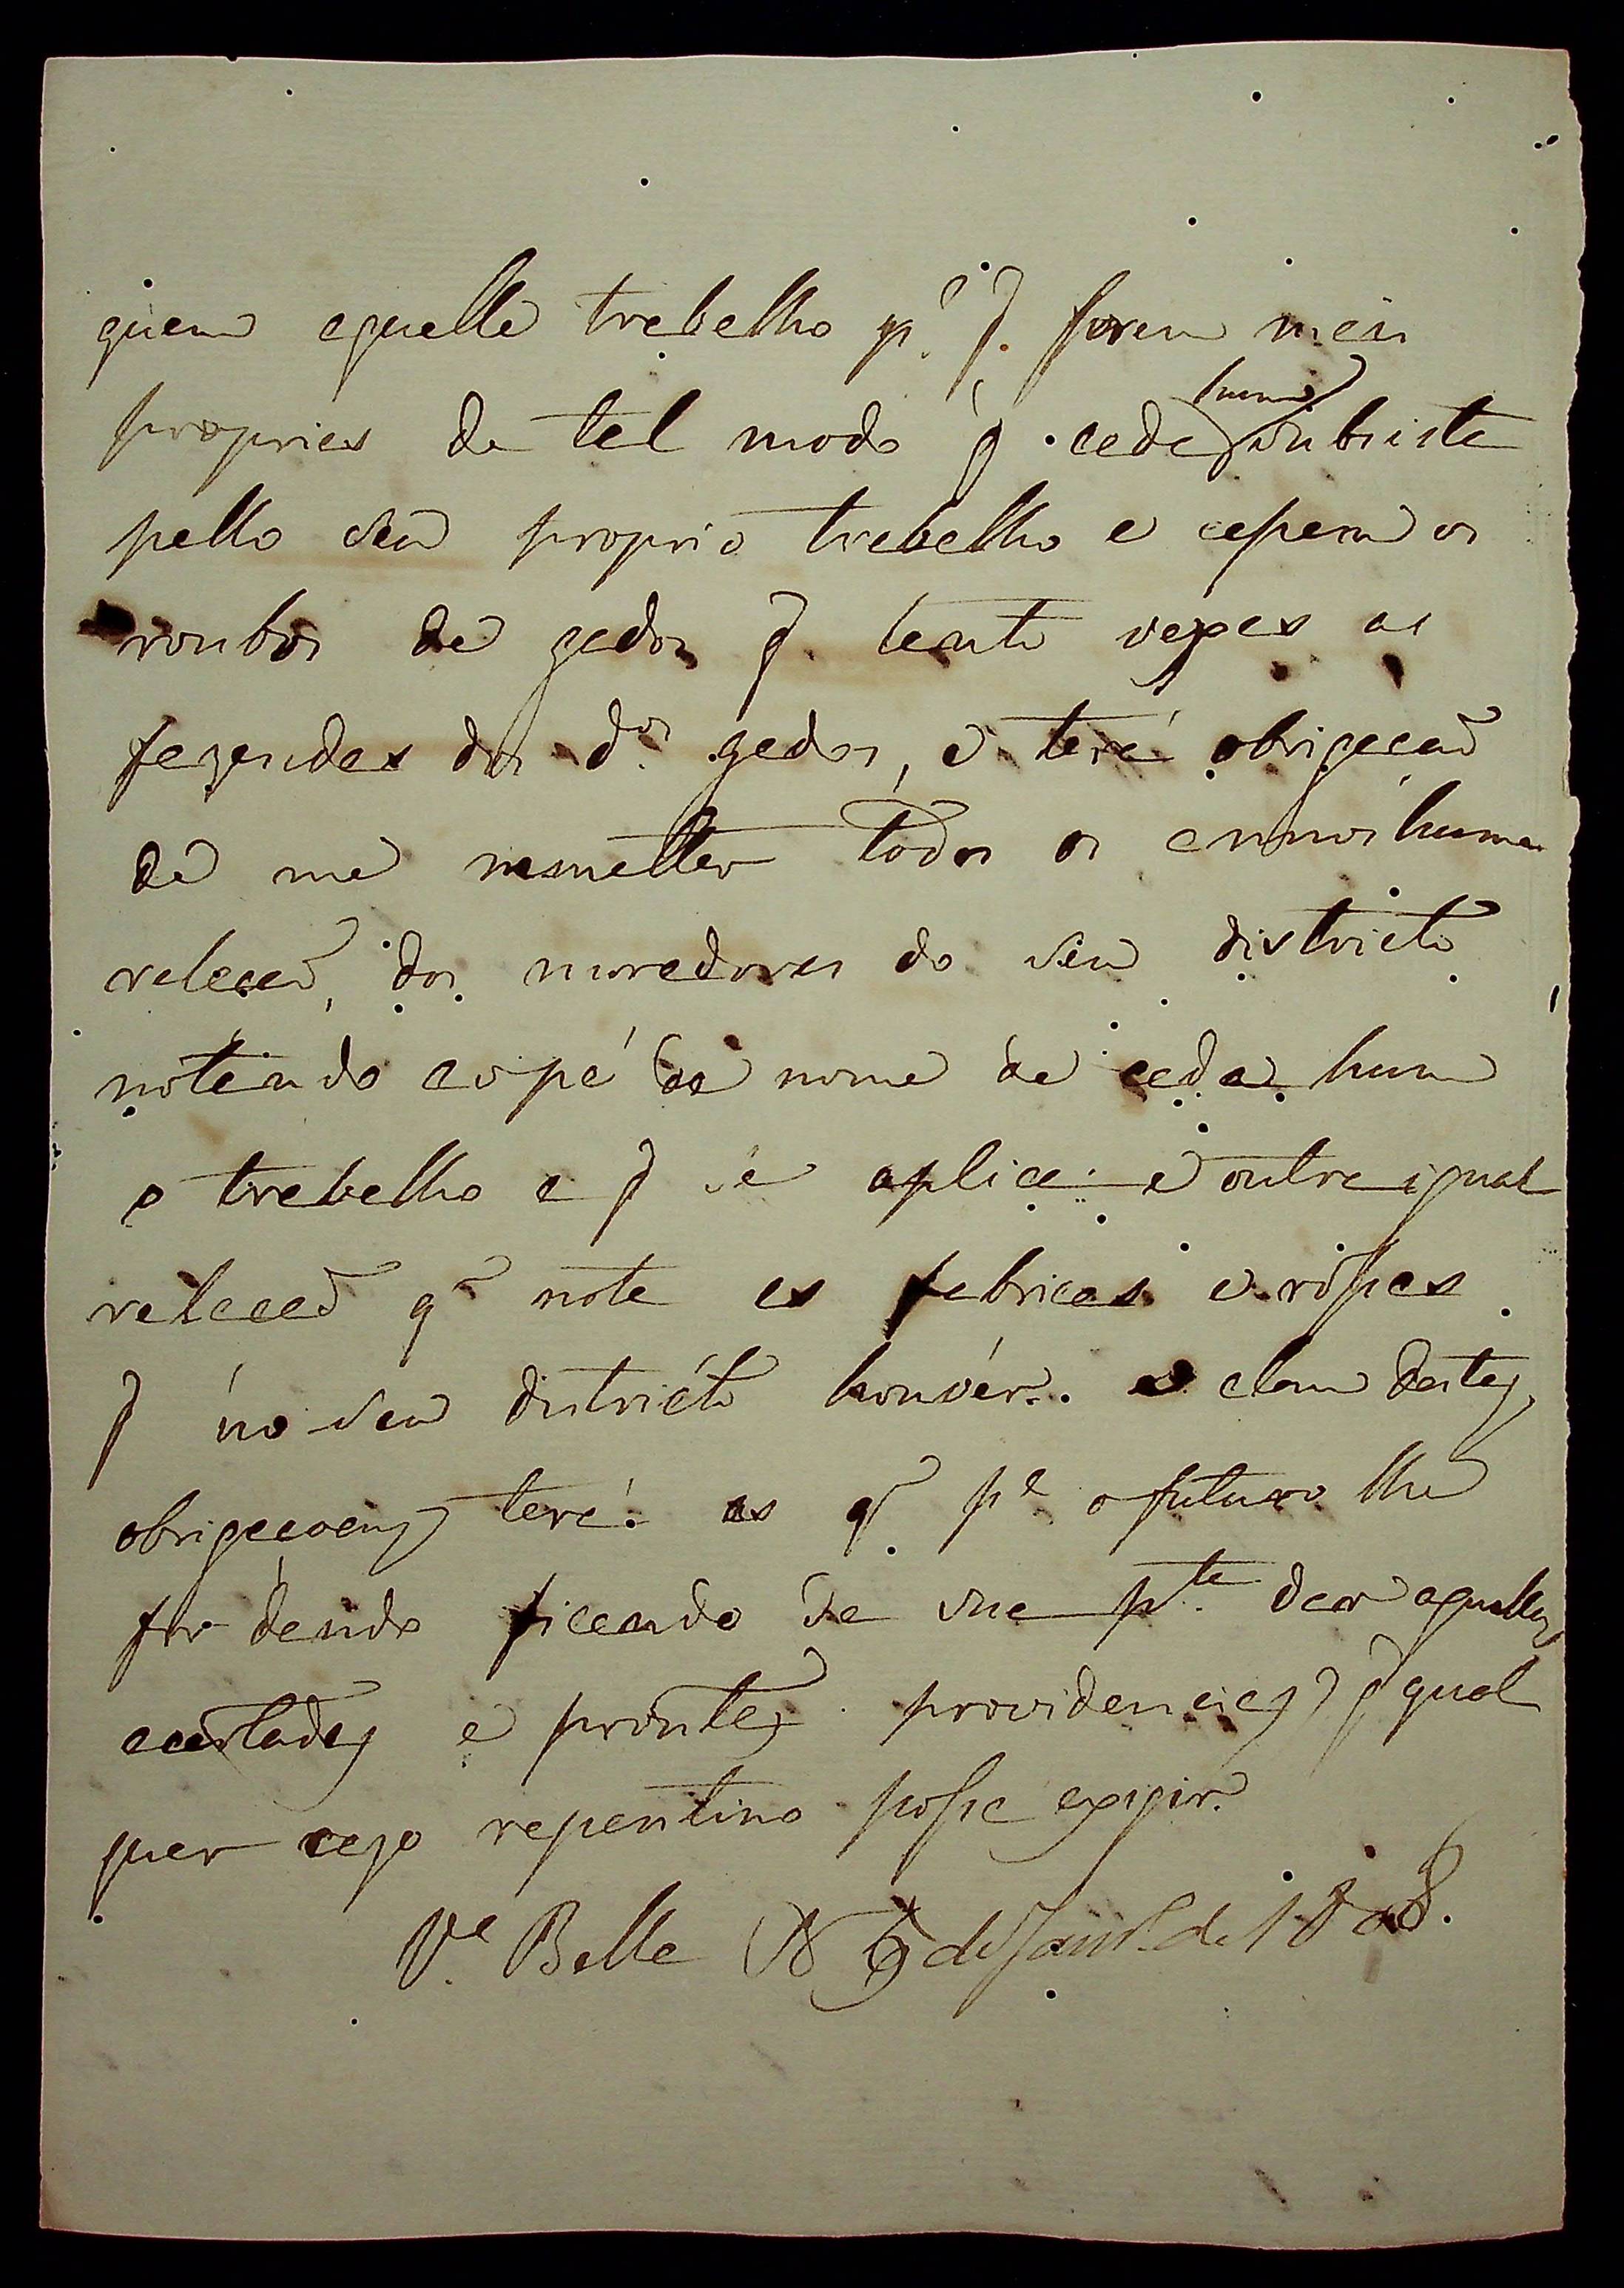 quem aquelle trabalho p.ª q. forem mais
proprios de tal modo q̃ cada hum subsista
pello seu proprio trabalho e cessem os
roubos de gados q̃. tanto vexes as
fazendas dos d.os gados, e terá obrigacaõ
de me remetter todos os annos huma
relacaõ, dos moradores do seu districto
notando ao pé do nome de cada hum
o trabalho a q̃ se aplica: e outra igual
relacaõ q̃ note as fabricas e rossas
q̃ no seu districto houver. e alem destas
obrigacoens terá as q̃ p.ª o futuro lhe
for dando ficando de sua p.te dar aquellas
acertadas e promtas providencias q̃ qual
quer cazo repentino possa exigir.
V.ª Bella de Janr.º de 1808.